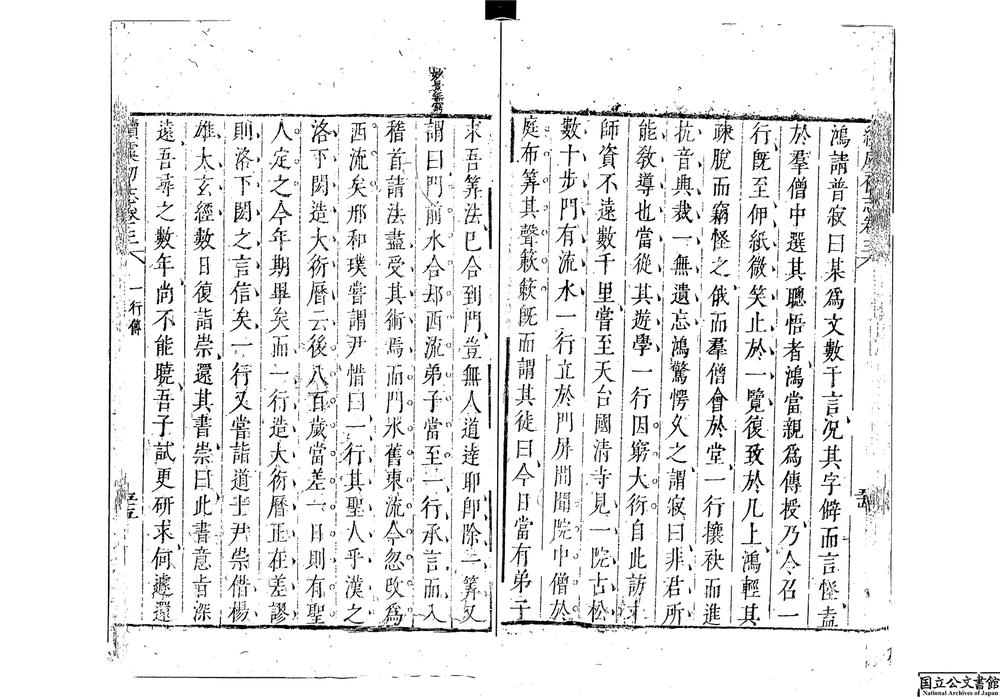 鴻請普寂曰某為文數千言况其字僻而言怪盍
於羣僧中選其聰悟者鴻當親為傳授乃令召一
行旣至伸紙微笑止於一覽復致於几上鴻輕其
疎脫而竊怪之俄而羣僧會於堂一行攘袂而進
抗音典裁一無遺忘鴻驚愕久之謂寂曰非君所
能敎導也當從其遊學一行因窮大衍自此訪求
師資不遠數千里嘗至天台國清寺見一院古松
數十步門有流水一行立於門屏間聞院中僧於
庭布筭其聲簌簌旣而謂其徒曰今日當有弟子
求吾筭法已合到門豈無人道達耶卽除一筭又
謂曰門前水合却西流弟子當至一行承言而入
稽首請法盡受其術焉而門水舊東流今忽改為
西流矣邢和璞嘗謂尹惜曰一行其聖人乎漢之
洛下閎造大衍曆云後八百歲當差一日則有聖
人定之今年期畢矣而一行造大衍曆正在差謬
則洛下閎之言信矣一行又嘗詣道士尹崇借楊
雄太玄經數日復詣崇還其書崇曰此書意旨深
遠吾尋之數年尚不能曉吾子試更研求何遽還
一行傳
国立公文書館
National Archives of Japan